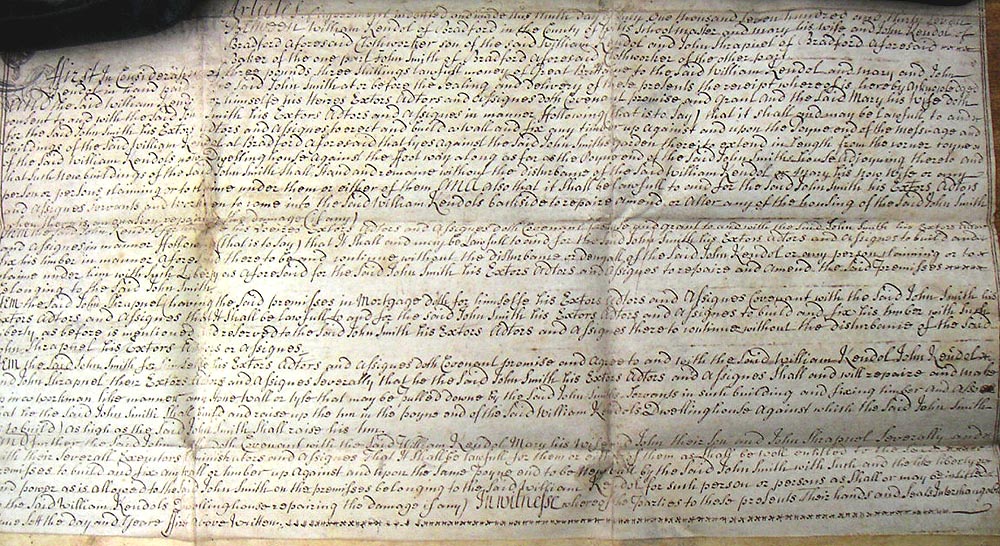 Articles of agreemt indented and made this ninth day of July One thousand seven hundred and thirty seven
Between William Rendol of Bradford in the County of Schoolmaster and Mary his wife and John Rendol of
Bradford Aforesaid Clothworker son of the said William Rendol and John Shrapnel of Bradford Aforesaid
of the one part John Smith of Bradford Aforesaid Clothworker of the other part
First In Consideration of three pounds three shillings lawfull money of Great Brittain to the said William Rendol and Mary and John
Rendol in hand paid by the said John Smith at or before the sealing and delivery of these presents the receipt whereof is hereby Acknowledged
the said William Rendol for himselfe his heires Extors Adtors and Assignes doth Covenant promise and grant And the said Mary his wife doth
Consent to and with the said John Smith his Extors Adtors and Assignes in manner following (that is to say) that it shall and may be lawfull to and
for the said John Smith his Extors Adtors and Assignes to erect and build a wall and fix any timber up Against and upon the Poyne end of the Messuage and
buildings of the said William Rendol at Bradford Aforesaid that lyes against the said John Smiths Garden there to extend in length from the corner
of the said William Rendols now dwelling house against the foot way along as far as the Poyne end of the said John Smiths house Adjoyning thereto and
that such new buildings of the said John Smith shall stand and remaine without the disturbance of the said William Rendol or Mary his now wife or any
person or persons claiming or to claime under them or either of them And also that it shall be lawfull to and for the said John Smith his Extors Adtors
and Assignes servants and workmen to come into the said William Rendols backside to repaire amend or Alter any of the housing of the said John Smith
when there is occasion repairing the damage (if any)
his heires Extors Adtors and Assignes doth Covenant promise and grant to and with the said John Smith his Extors Adtors
and Assignes in manner following (that is to say) that it shall and may be lawfull to and for the said John Smith his Extors Adtors and Assignes to build and
fix his timber in manner Aforesaid there to be and continue without the disturbance or denyall of the said John Rendol or any person claiming or to
claime under him with such Liberty as aforesaid for the said John Smith his Extors Adtors and Assignes to repaire and Amend the said Premisses
belonging to the said John Smith
Item the said John Shrapnel having the said premisses in Mortgage doth for himselfe his Extors Adtors and Assignes Covenant with the said John Smith his
Extors Adtors and Assignes that it shall be lawfull to and for the said John Smith his Extors Adtors and Assignes to build and fix his timber with such
liberty as before is mentioned and reserved to the said John Smith his Extors Adtors and Assignes there to continue without the disturbance of the said
John Shrapnel his Extors Adtors or Assignes
Item the said John Smith for himselfe his Extors Adtors and Assignes doth Covenant promise and Agree to and with the said William Rendol John Rendol &
and John Shrapnel their Extors Adtors and Assignes severally that he the said John Smith his Extors Adtors and Assignes shall and will repaire and make
in a workman like manner any stone wall or tyle that may be pulled downe by the said John Smiths servants in such building and fixing timber and Also
that he the said John Smith shall build and raise up the tun in the poyne end of the said William Rendols dwelling house Against which the said John Smith
is to build) as high as the said John Smith shall raise his tun
And further the said John Smith doth Covenant with the said William Rendol Mary his wife and John their son and John Shrapnel severally and
with their severall Executors Administrators and Assignes that it shall be lawfull for them or any of them as shall be well entitled to the
premisses to build and fix any wall or timber up Against and upon the same Poyne end to be New built by the said John Smith with such and the like liberty
and power as is allowed to the said John Smith on the premisses belonging to the said William Rendol for such person or persons as shall or may be entitled
to the said William Rendols dwelling house repairing the damage (if any) In witnesse whereof the Parties to these presents their hands and seals Interchangeably
have sett the day and yeare first above written